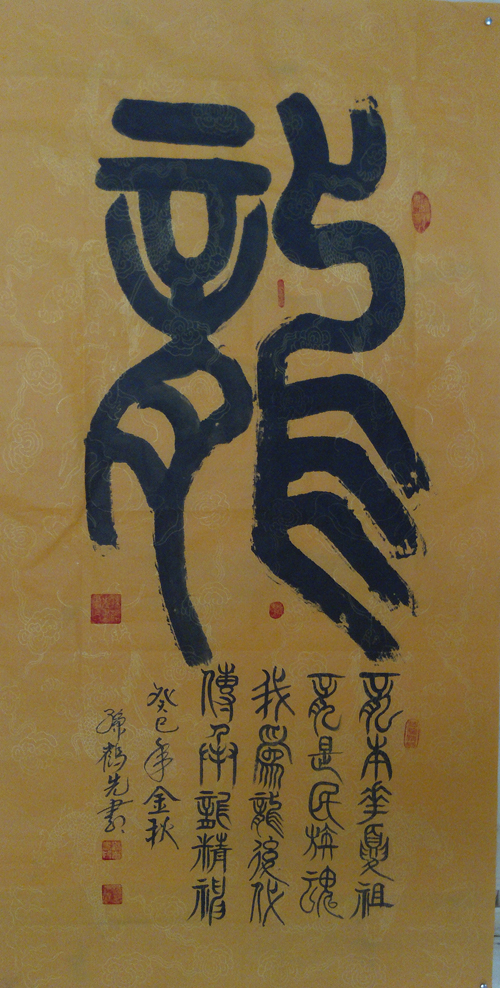 龍
龍本華夏祖
龍是民族魂
我為龍後代
傳承龍精神
癸巳年金秋
孫鶴先書